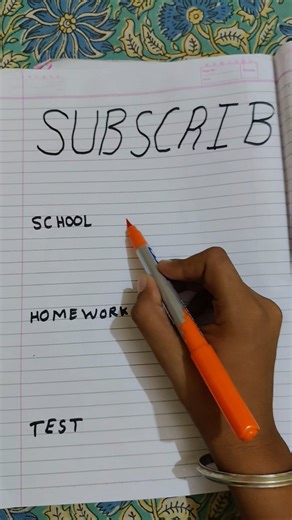 SUBSCRIB
SCHOOL
HOMEWORK
TEST